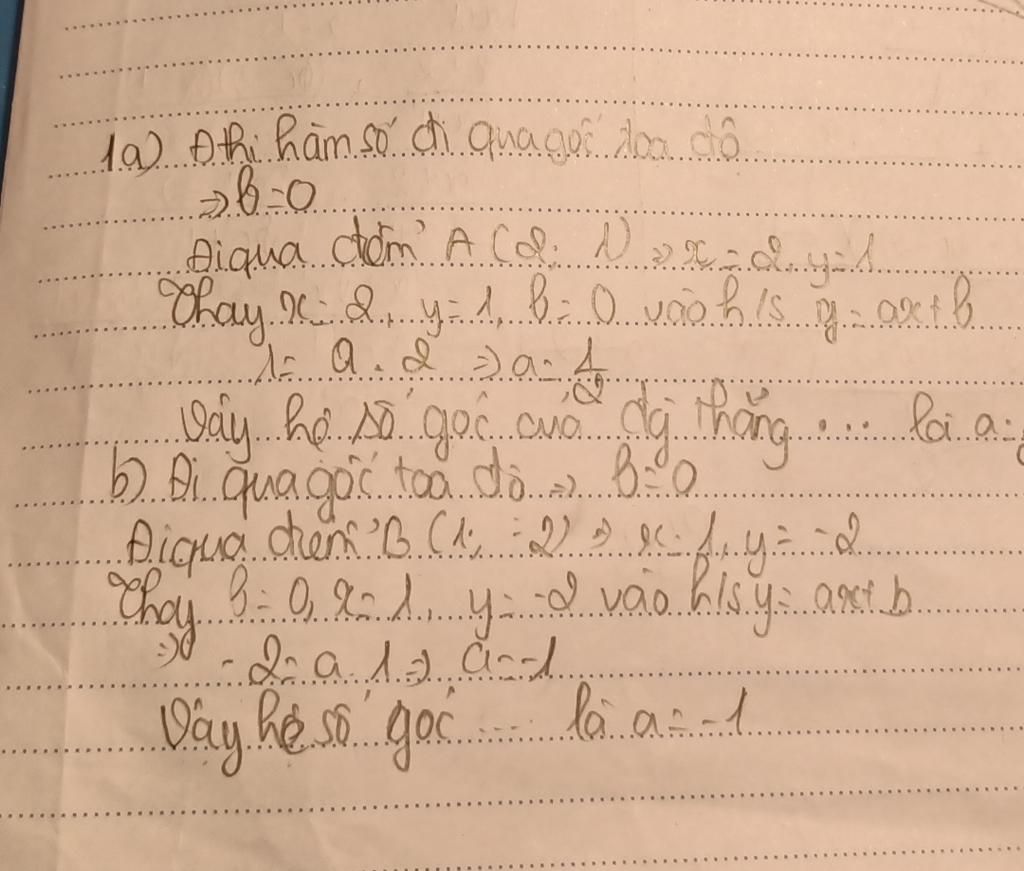 1a) Đthị hàm số đi qua gốc toạ độ
=> b=0
Đi qua điểm A (2; 1) => x=2, y=1
Thay x=2, y=1, b=0 vào h/s y=ax+b
1= a.2 => a= 1/2
Vậy hệ số góc của đg thẳng .... là a=
b) Đi qua gốc toạ độ => b=0
Đi qua điểm B (1; -2) => x=1, y=-2
Thay b=0, x=1, y=-2 vào h/s y= ax+b
=> -2=a.1 => a=-1
Vậy hệ số góc .... là a=-1